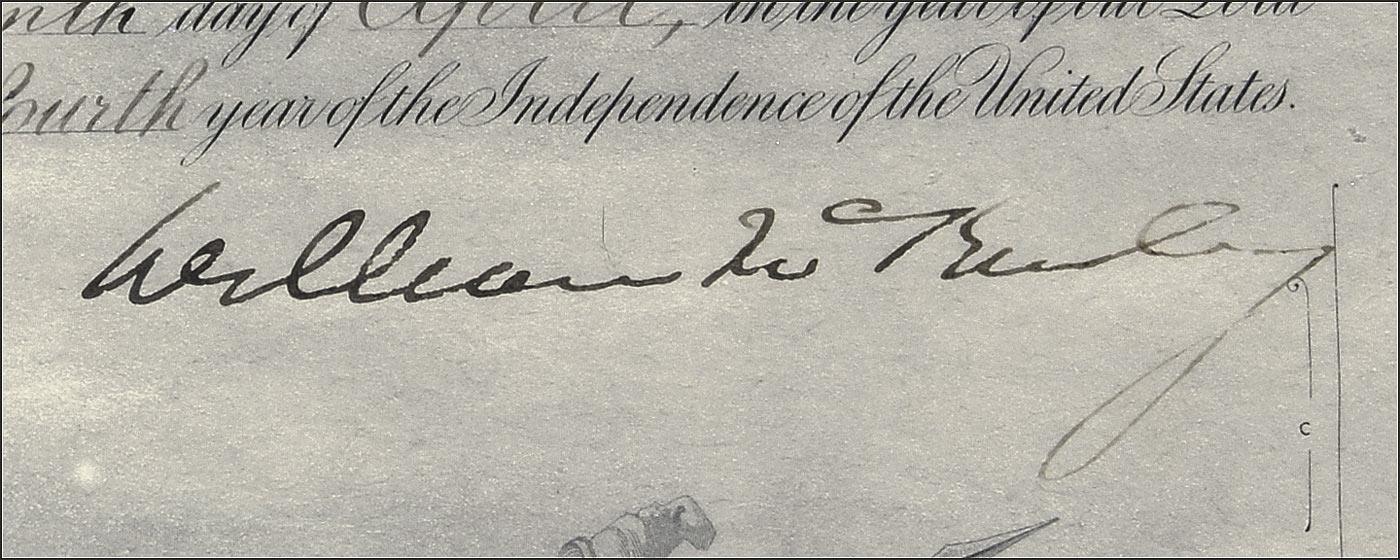 day of April, in the year of our Lord
year of the Independence of the United States.
William McKinley
C